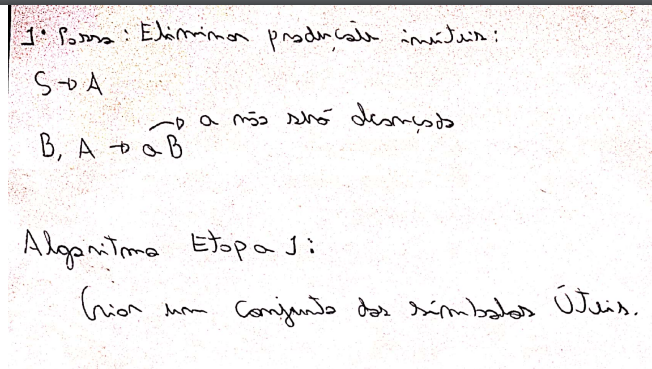 1º Passo: Eliminar produções inúteis:
S → A
B, A → aB → a não será alcançado
Algoritmo Etapa 1:
Criar um conjunto dos símbolos Úteis.